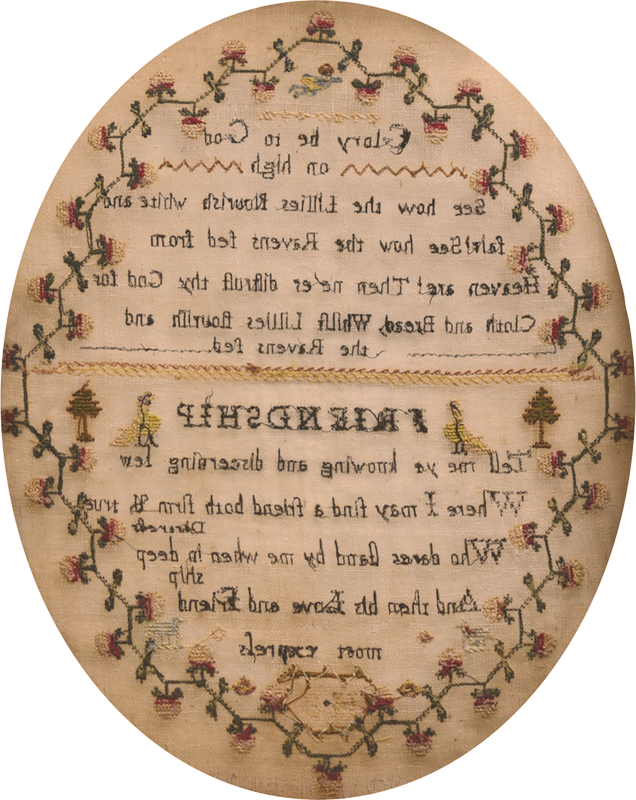 Glory be to God
on high
See how the Lillies flourish white and
fair! See how the Ravens fed from
Heaven are! Then ne'er diſtruſt thy God for
Cloth and Bread, Whilſt Lillies flouriſh and
the Ravens fed.
FRIENDSHIP
Tell me ye knowing and discerning few
Where I may find a friend both firm & true
Distreſs
Who dares ſtand by me when in deep
ship
And then his Love and Friend
most expreſs